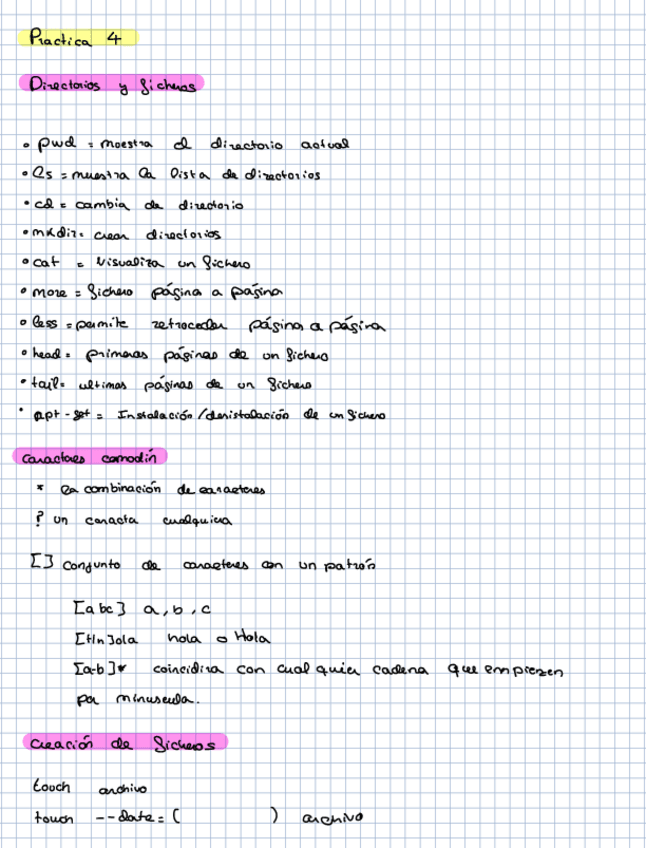 Practica 4
Directorios y ficheros
• pwd = muestra el directorio actual
• ls = muestra la lista de directorios
• cd = cambia de directorio
• mkdir = crear directorios
• cat = visualiza un fichero
• more = fichero página a página
• less = permite retroceder página a página
• head = primeras páginas de un fichero
• tail = ultimas páginas de un fichero
• apt-get = Instalación/desistalación de un fichero
Caracteres comodín
* la combinación de caracteres
? un caracter cualquiera
[] conjunto de caracteres con un patrón
[abc] a, b, c
[H|h]ola hola o Hola
[a-b]* coincidira con cualquier cadena que empiezen
por minuscula.
Creación de ficheros
touch archivo
touch --date = ( ) archivo